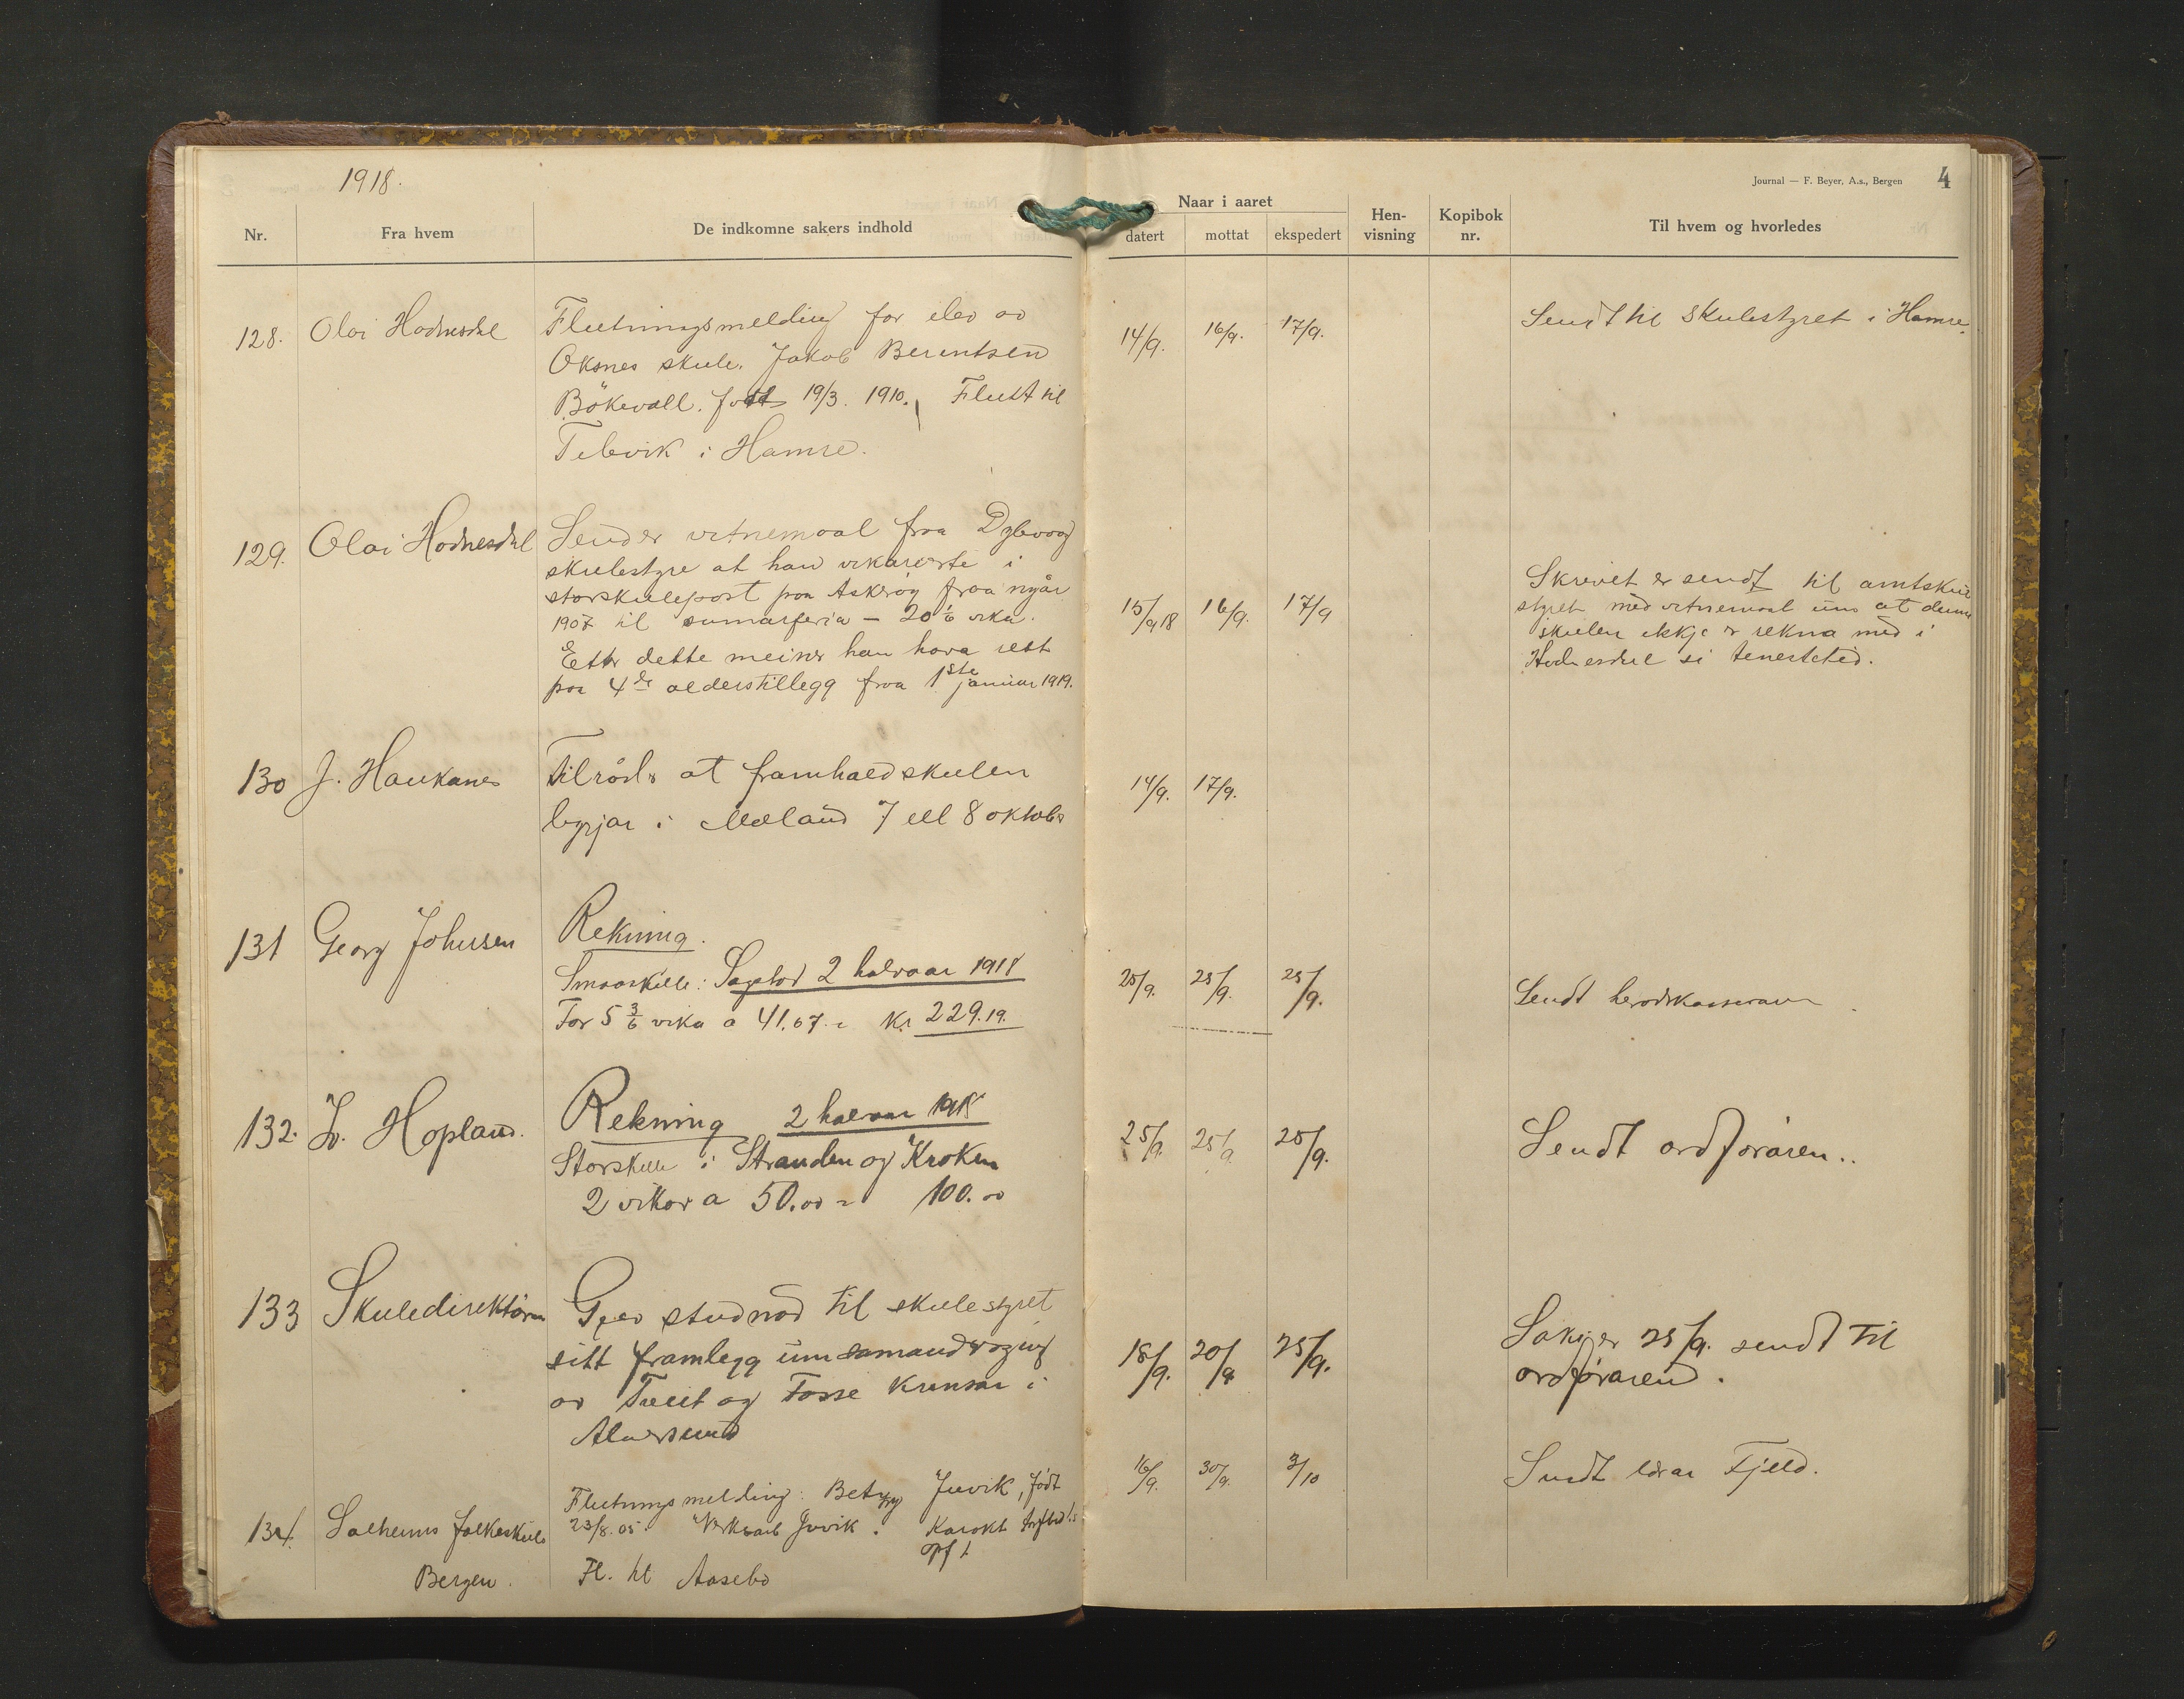 1918.
Journal — F. Beyer, A.s., Bergen 4
Nr. Fra hvem De indkomne sakers indhold Naar i aaret datert mottat ekspedert Hen-visning Kopibok nr. Til hvem og hvorledes
128. Olai Hodnesdal Flutningsmelding for elev av 14/9. 16/9. 17/9. Sendt til Skulestyret i Hamre.
Oksnes skule. Jakob Berentsen
Bökevoll. født 19/3. 1910. Flutt til
Tebvik i Hamre.
129. Olai Hodnesdal Sender vitnemaal fraa Dybvaag
skulestyre at han vikarierte i
storskulepost paa Askrøy fraa nyår
1907 til sumarferia – 20 1/6 vika. 15/9 18 16/9. 17/9
Etter dette meiner han hava rett
paa 4de alderstillegg fraa 1ste januar 1919.
Skrivet er sendt til amtskule
styret med vitnemaal um at denne
skulen ikkje er rekna med i
Hodnesdal si tenestetid.
130 J. Haukanes Tilråder at framhaldskulen 14/9. 17/9.
byrjar i Mæland 7 ell 8 oktober
131 Georg Johnsen Rekning.
Smaaskule: 2 halvaar 1918 25/9. 25/9. 25/9. Sendt
For 5 3/6 vika a 41.67 = Kr 229.19.
132. L. Hopland. Rekning 2 halvaar 1918 25/9. 25/9. 25/9. Sendt ordføraren..
Storskule i Stranden og Kroken
2 vikor a 50.00 = 100.00
133 Skuledirektøren Gjev studnad til skulestyret
sitt framlegg um samandraging 18/9. 20/9 25/9. Saki er 25/9. sendt til
av Tveit og Fosse krinsar i ordføraren.
Alversund
134. Solheims folkeskule Flutningsmelding: Betzy Juvik, født 16/9. 30/9. 3/10 Sendt lærar Fjeld.
23/8. 05 Juvik.
Bergen. Fl. til Aasebø